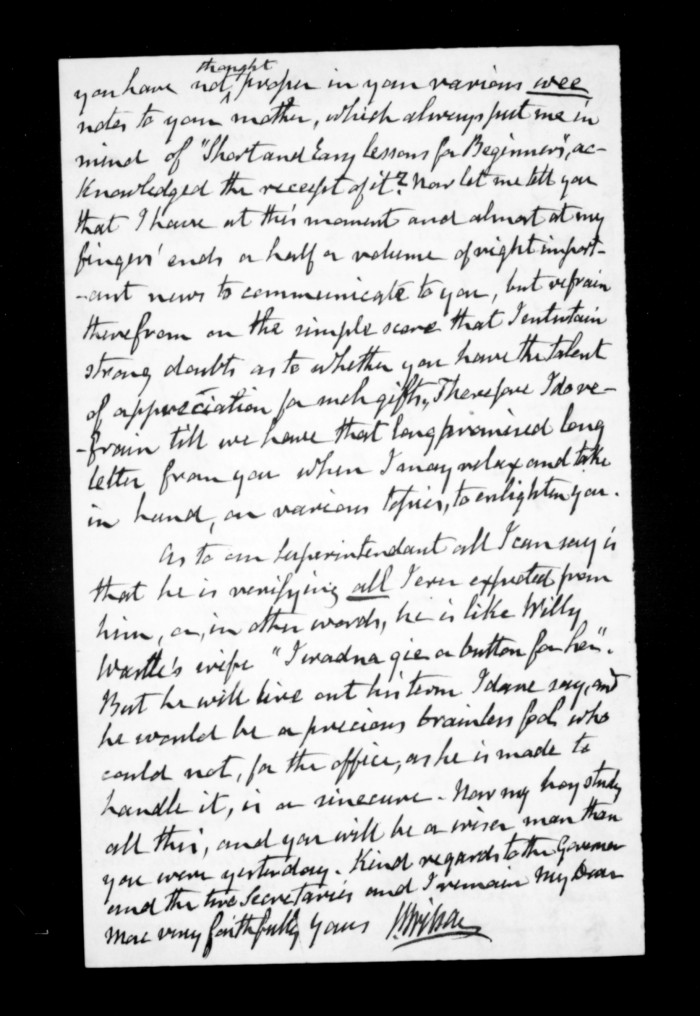 thought
you have not ^ proper in your various wee
notes to your mother, which always put me in
mind of "Short and Easy lessons for Beginners", ac-
knowledged the receipt of it? Now let me tell you
that I have at this moment and almost at my
fingers' ends a half a volume of right import-
-ant news to communicate to you, but refrain
therefrom on the simple score that I entertain
strong doubts as to whether you have the talent
of appreciation for such gifts, Therefore I do re-
-frain till we have that long promised long
letter from you when I may relax and take
in hand, on various topics, to enlighten you.
As to our Superintendant all I can say is
that he is verifying all I ever expected from
him, or, in other words, he is like Willy
Wastle's wife "I wadna gie a button for her".
But he will live out his term I dare say, and
he would be a precious brainless fool who
could not, for the office, as he is made to
handle it, is a sinecure. Now my boy study
all this, and you will be a wiser man than
you were yesterday. Kind regards to the Governor
and the two Secretaries and I remain My Dear
Mac very faithfully yours